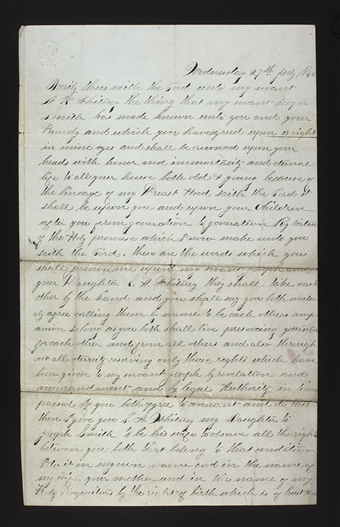 Wednesday 27th July 1842
Verily thus saith the Lord unto my servant
N. K. Whitney the thing that my servant Joseph
Smith has made known unto you and your
Family and which you have agreed upon is right
in mine eyes and shall be crowned upon your
heads with honor and immortality and eternal
life to all your house both old & young because of
the lineage of my Preast Hood saith the Lord it
shall be upon you and upon your Children
after you from generation to generation By virtue
of the Holy promise which I now make unto you
saith the Lord. these are the words which you
shall pronounce upon my servant Joseph and
your Daughter S. A. Whitney they shall take each
other by the hand and you shall say you both mutu
aly agree calling them by name to be each others
so long as you both shall live preserving yourselves
for each other and from all others and also through
out all eternity reserving only those rights which have
been given to my servant Joseph by revelation and
commandment and by legal Authority in times
passed If you both agree to covenant and do this
then I give you S. A. Whitney my Daughter to
Joseph Smith to be his wife to observe all the rights
between you both that belong to that condition
I do it in my own name and in the name of
my wife your mother and in the name of my
Holy Progenitors by the right of birth which is of Priest